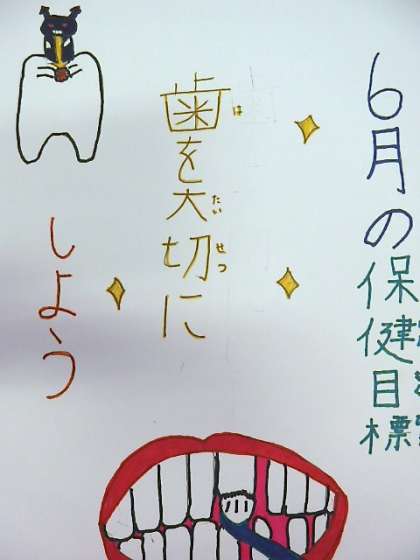 6月の保健目標
歯を大切に
は たい せつ
しよう